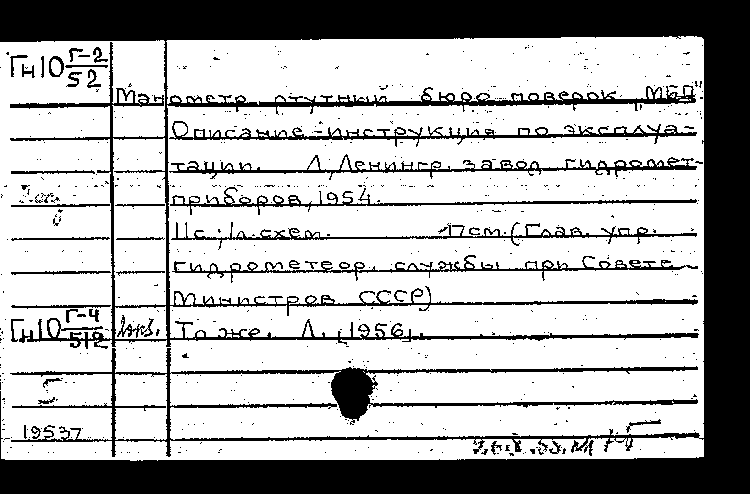 Гн10 Г-2/52
Манометр ртутный бюро поверок „МБП"
Описание-инструкция по эксплуа-
тации. Л., Ленингр. завод гидромет-
приборов, 1954.
11с.; 1л. схем. 17см. (Глав. упр.
гидрометеор. службы при Совете
Министров СССР)
Гн10 Г-4/512 1экз. То же. Л. [1956].
19537